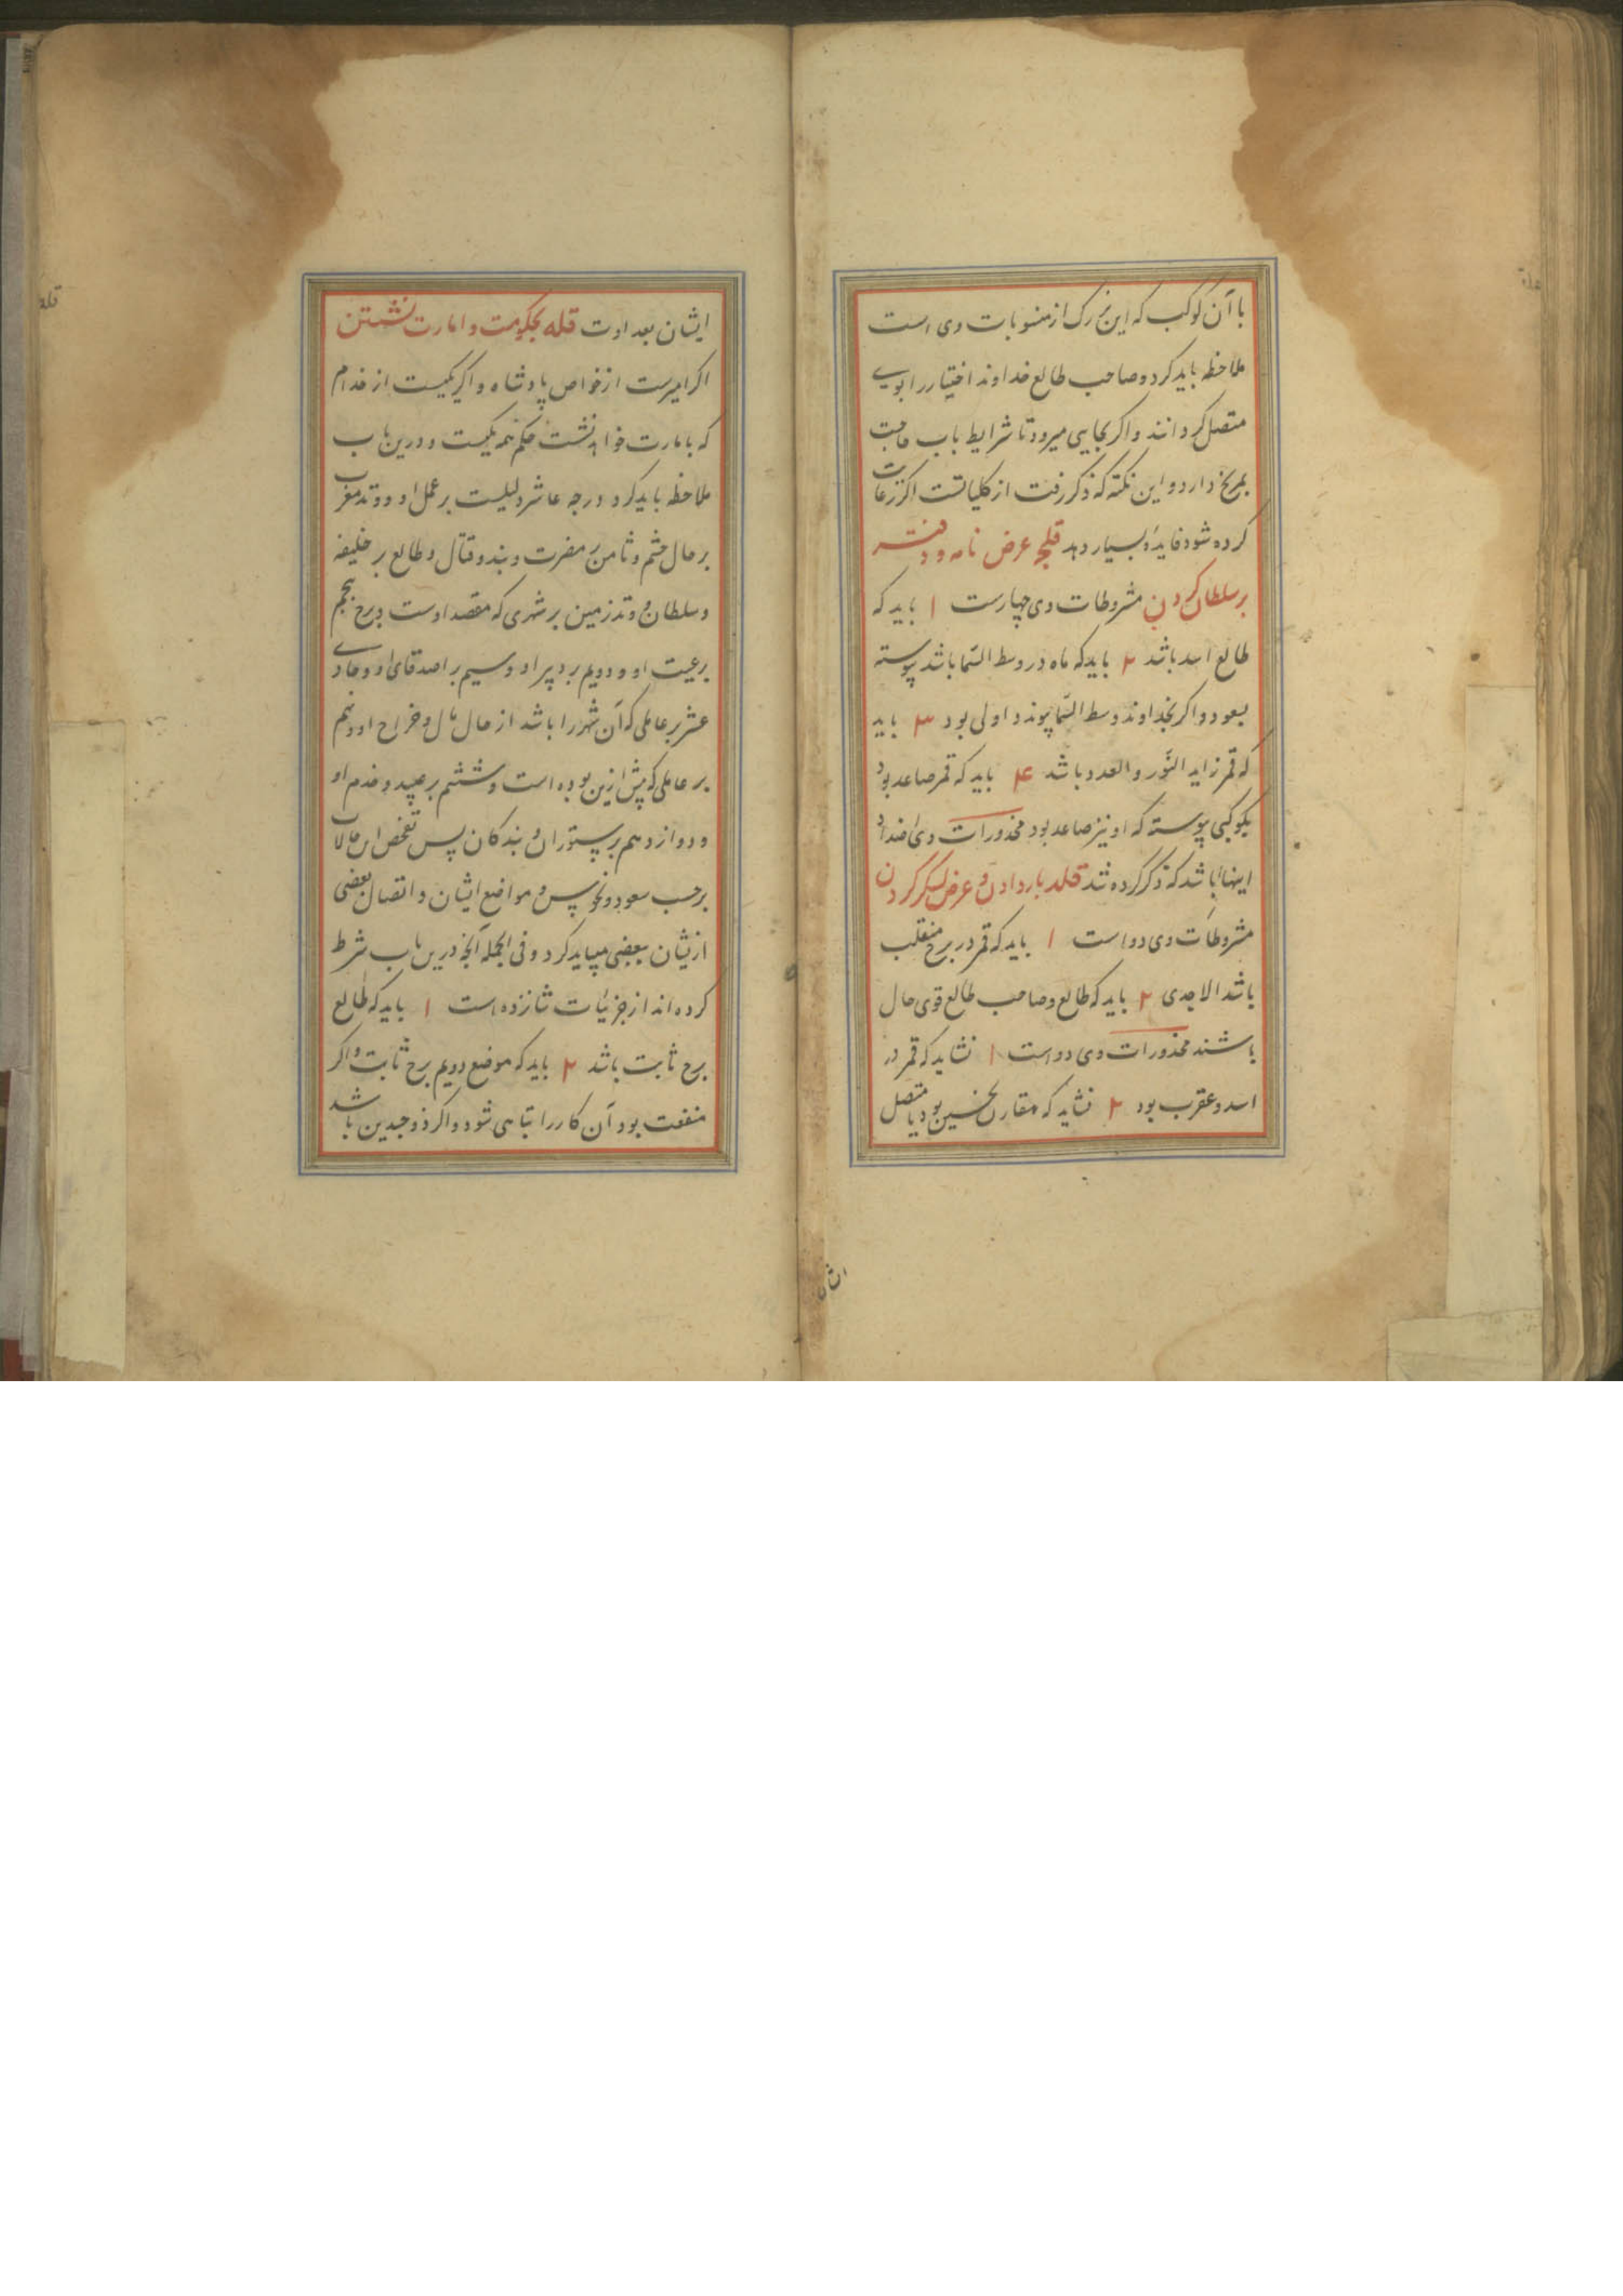 با آن کوکب که این بزرک از منسوبات وی است
ملاحظه باید کرد و صاحب طالع خداوند اختیار را بوی
متصل کردانند و اکر بجایی میرود تا شرایط باب حاجت
بمریخ دارد و این نکته که ذکر رفت از کلیاتست اکر رعایت
کرده شود فایدۀ بسیار دهد عرض نامه و دفتر
بر سلطان کردن مشروطات وی چهارست ۱ باید که
طالع اسد باشد ۲ باید که ماه در وسط السّما باشد پیوسته
بسعود و اکر بخداوند وسط السّما پیوندد اولی بود ۳ باید
که قمر زاید النّور و العدد باشد ۴ باید که قمر صاعد بود
بکوکبی پیوسته که او نیز صاعد بود محذورات وی اضداد
اینها باشد که ذکر کرده شد قلد بار دادن و عرض لشکر کردن
مشروطات وی دو است ۱ باید که قمر در برج منقلب
باشد الا جدی ۲ باید که طالع و صاحب طالع قوی حال
باشند محذورات وی دو است ۱ نشاید که قمر در
اسد و عقرب بود ۲ نشاید که مقارن نحسین بود یا متصل
ایشان
ایشان بعداوت قله بحکومت و امارت نشستن
اکر امیرست از خواص پادشاه و اکر یکیست از خدام
که بامارت خواهد نشست حکم همه یکیست و درین باب
ملاحظه باید کرد درجه عاشر دلیلست بر عمل او و وتد مغرب
بر حال خشم و ثامن بر مضرت و بند و قتال و طالع بر خلیفه
و سلطان و وتد زمین بر شهری که مقصد اوست و برج پنجم
برعیت او و دویم بر دبیر او و سیم بر اصدقای او و حادی
عشر بر عاملی که آن شهر را باشد از حال مال و خراج او و نهم
بر عاملی که پیش ازین بوده است و ششم بر عبید و خدم او
و دوازدهم بر ستوران و بندکان پس تفحص این حالات
برحسب سعود و نحوس و مواضع ایشان و اتصال بعضی
ازیشان ببعضی میباید کرد و فی الجمله آنچه درین باب شرط
کرده اند از جزئیات شانزده است ۱ باید که طالع
برج ثابت باشد ۲ باید که موضع دویم برج ثابت و اکر
منقلب بود آن کار را تباهی شود و اکر ذو جسدین باشد
قله